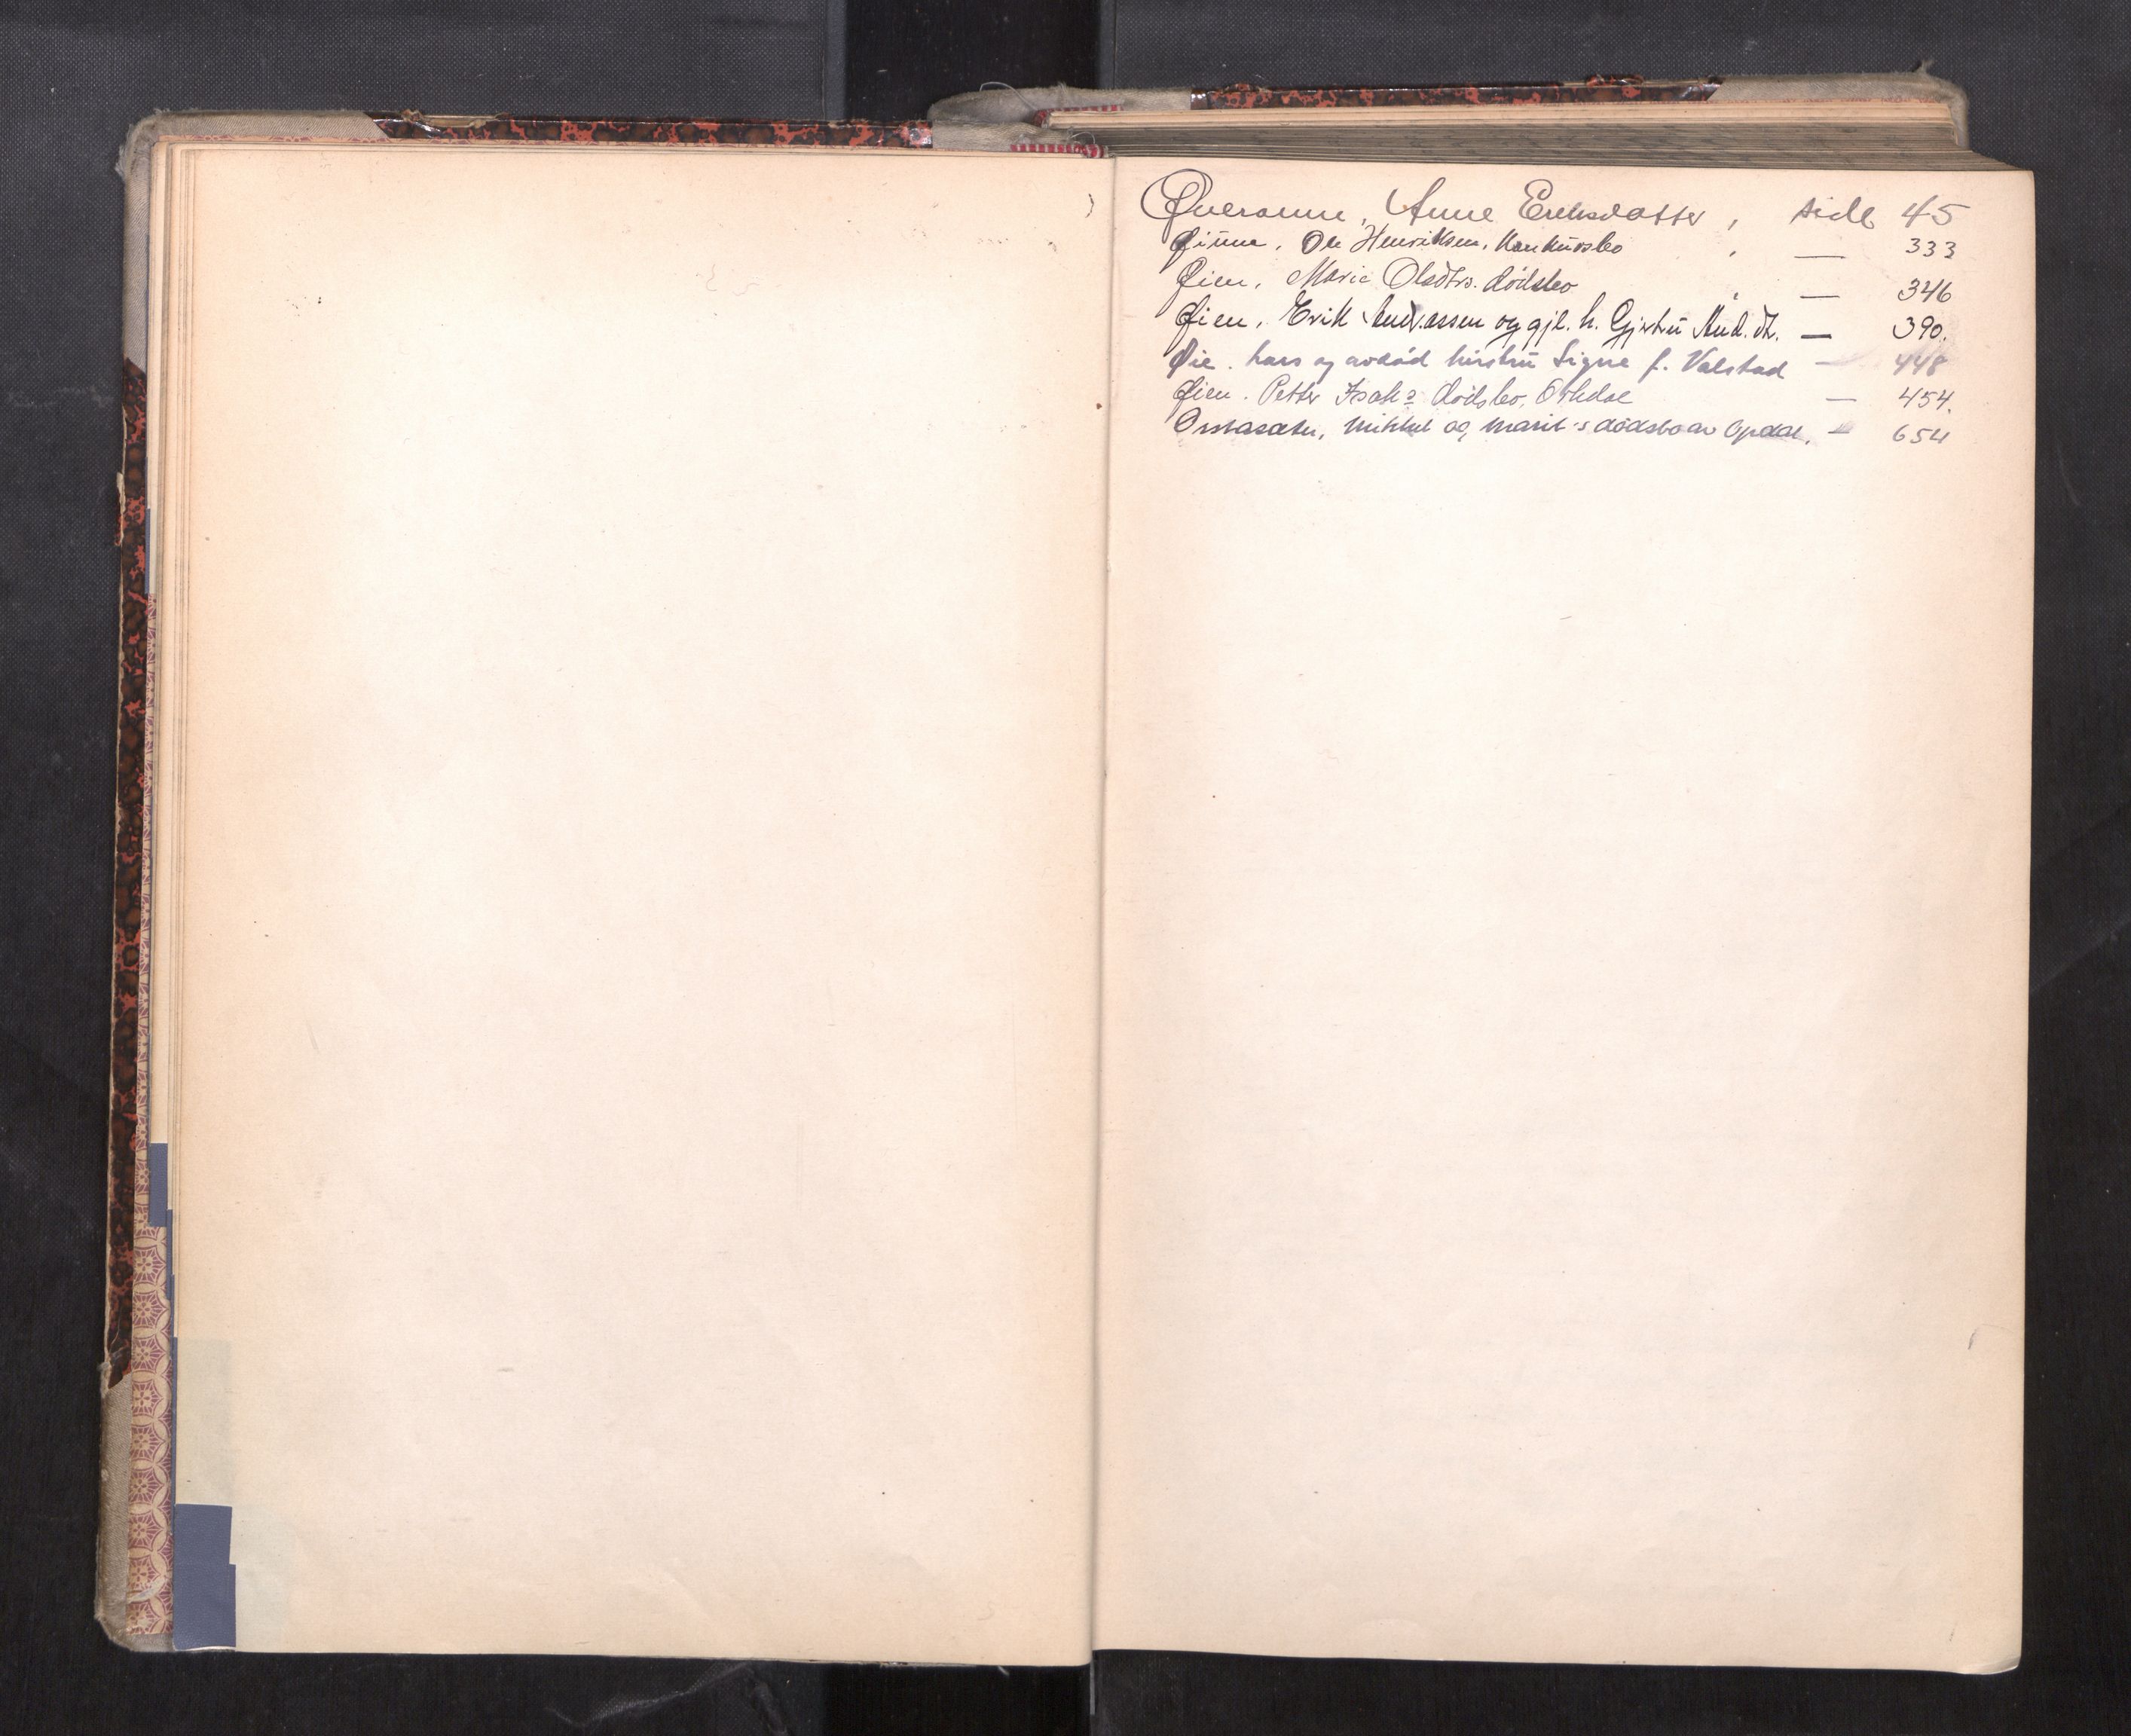 Øveraune, Anne Eriksdatter, side 45
Øiune, Ole Henriksen, Konkursbo, — 333
Øien, Marie Olsdtrs. dödsbo — 346
Øien, Erik Andreassen og gjl. h. Gjertrü And. dt. — 390.
Øie. Lars og avdöd hüstrü Signe f. Valstad — 448
Øien. Petter Isaks dödsbo, Orkdal — 454.
Mikkel og Marit's dödsbo av Opdal. — 654